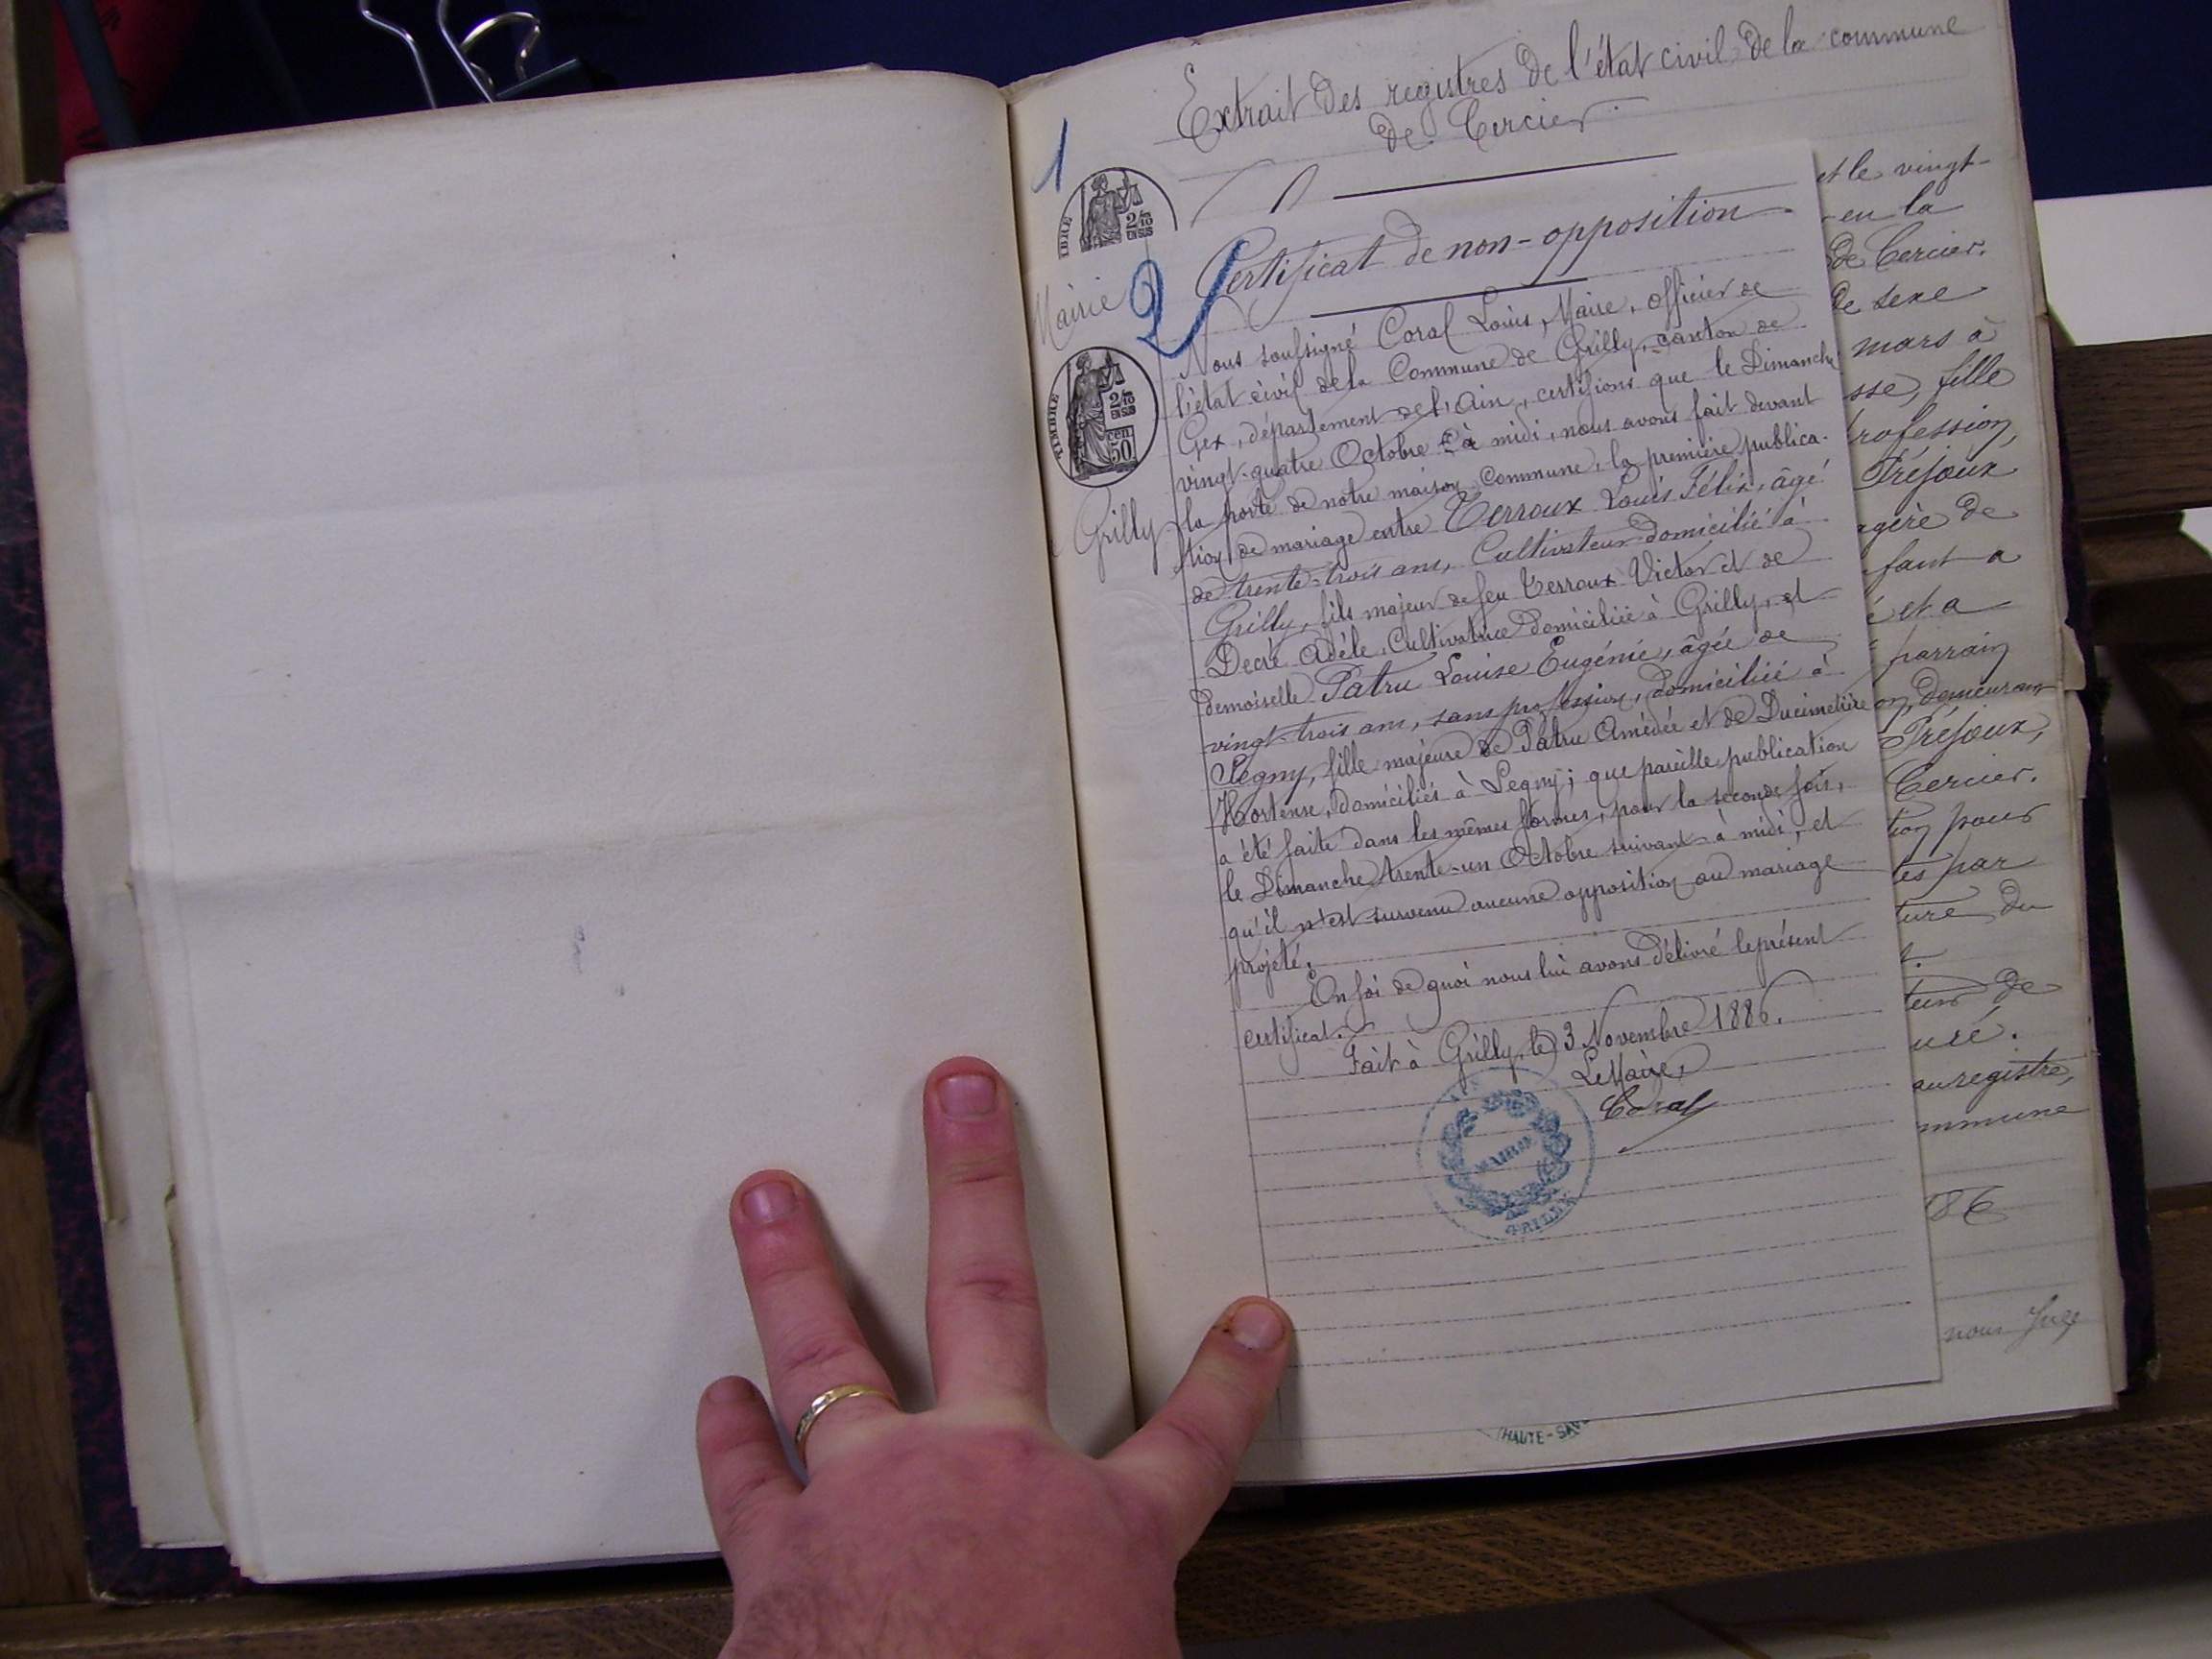 Extrait des registres de l'état civil de la commune
de Cercier.
1
2/10
EN SUS
Certificat de non-opposition
Mairie
2
TIMBRE
2/10
EN SUS
cen
50
de Grilly
Nous soussigné Coral Louis, Maire, officier de
l'état civil de la Commune de Grilly, canton de
Gex, département de l'Ain, certifions que le Dimanche
vingt-quatre Octobre à midi, nous avons fait devant
la porte de notre maison Commune, la première publica-
tion de mariage entre Terroux Louis Félix, âgé
de trente-trois ans, Cultivateur domicilié à
Grilly, fils majeur de feu Terroux Victor et de
Decré Adèle, Cultivatrice domiciliée à Grilly, et
demoiselle Patru Louise Eugénie, âgée de
vingt-trois ans, sans profession, domiciliée à
Segny, fille majeure de Patru Amédée et de Ducimetière
Hortense, domiciliés à Segny; que pareille publication
a été faite dans les mêmes formes, pour la seconde fois,
le Dimanche trente-un Octobre suivant à midi, et
qu'il n'est survenu aucune opposition au mariage
projeté.
En foi de quoi nous lui avons délivré le présent
certificat.
Fait à Grilly, le 3 Novembre 1886.
Le Maire,
Coral
MAIRIE
GRILLY
et le vingt-
en la
de Cercier.
de sexe
mars à
sse, fille
profession,
Tréjoux
agère de
fant a
é et a
parrain
on, demeurant
Tréjoux,
Cercier.
tion pour
tes par
ture du
teur de
uré.
au registre,
mmune
86
nous Juge
HAUTE-SAV